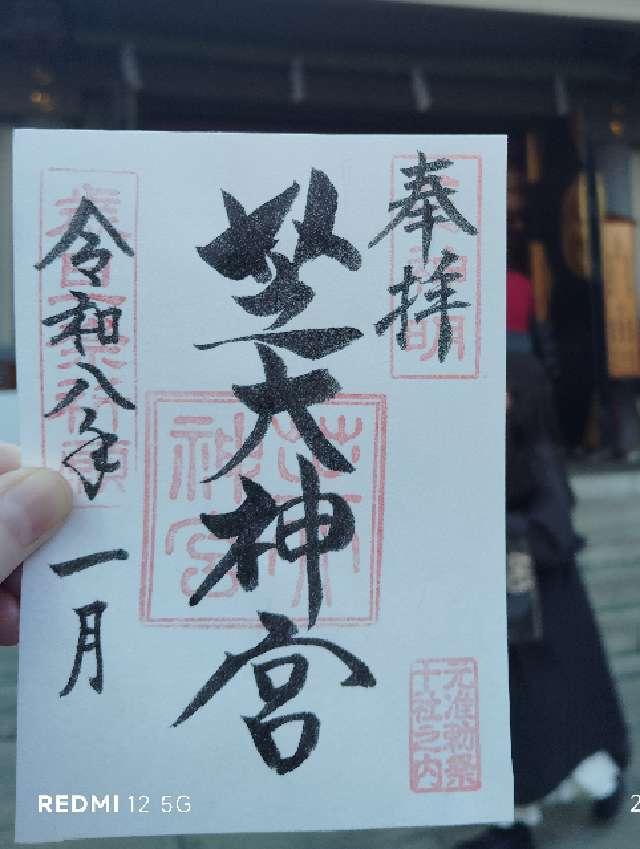 奉拝
芝大神宮
令和八年
一月
芝大神宮
元准勅祭
十社之内
REDMI 12 5G